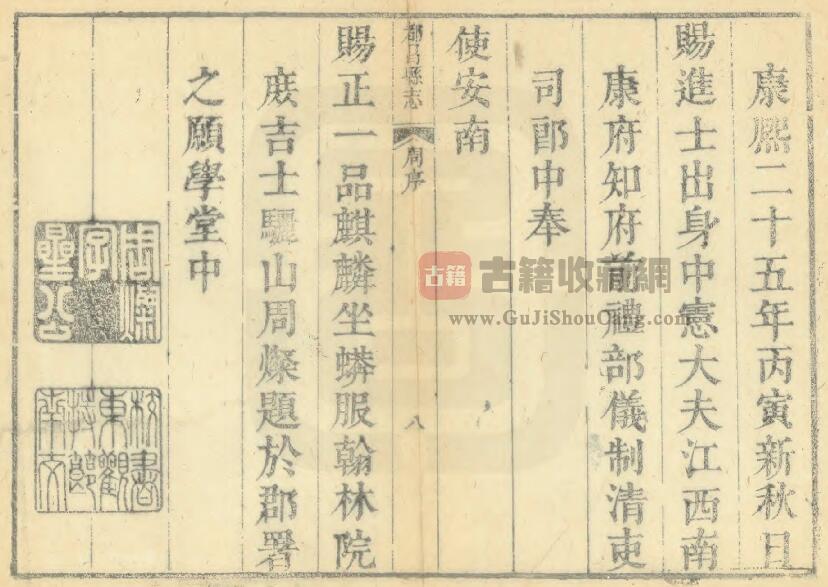 康熙二十五年丙寅新秋日
賜進士出身中憲大夫江西南
康府知府前禮部儀制清吏
司郎中奉
使安南
都昌縣志
周序
八
賜正一品麒麟坐蟒服翰林院
庶吉士驪山周燦題於郡署
之願學堂中
周燦
字
星公
校書
東觀
持節
南交
古籍
古籍收藏網
www.GuJiShouCang.com